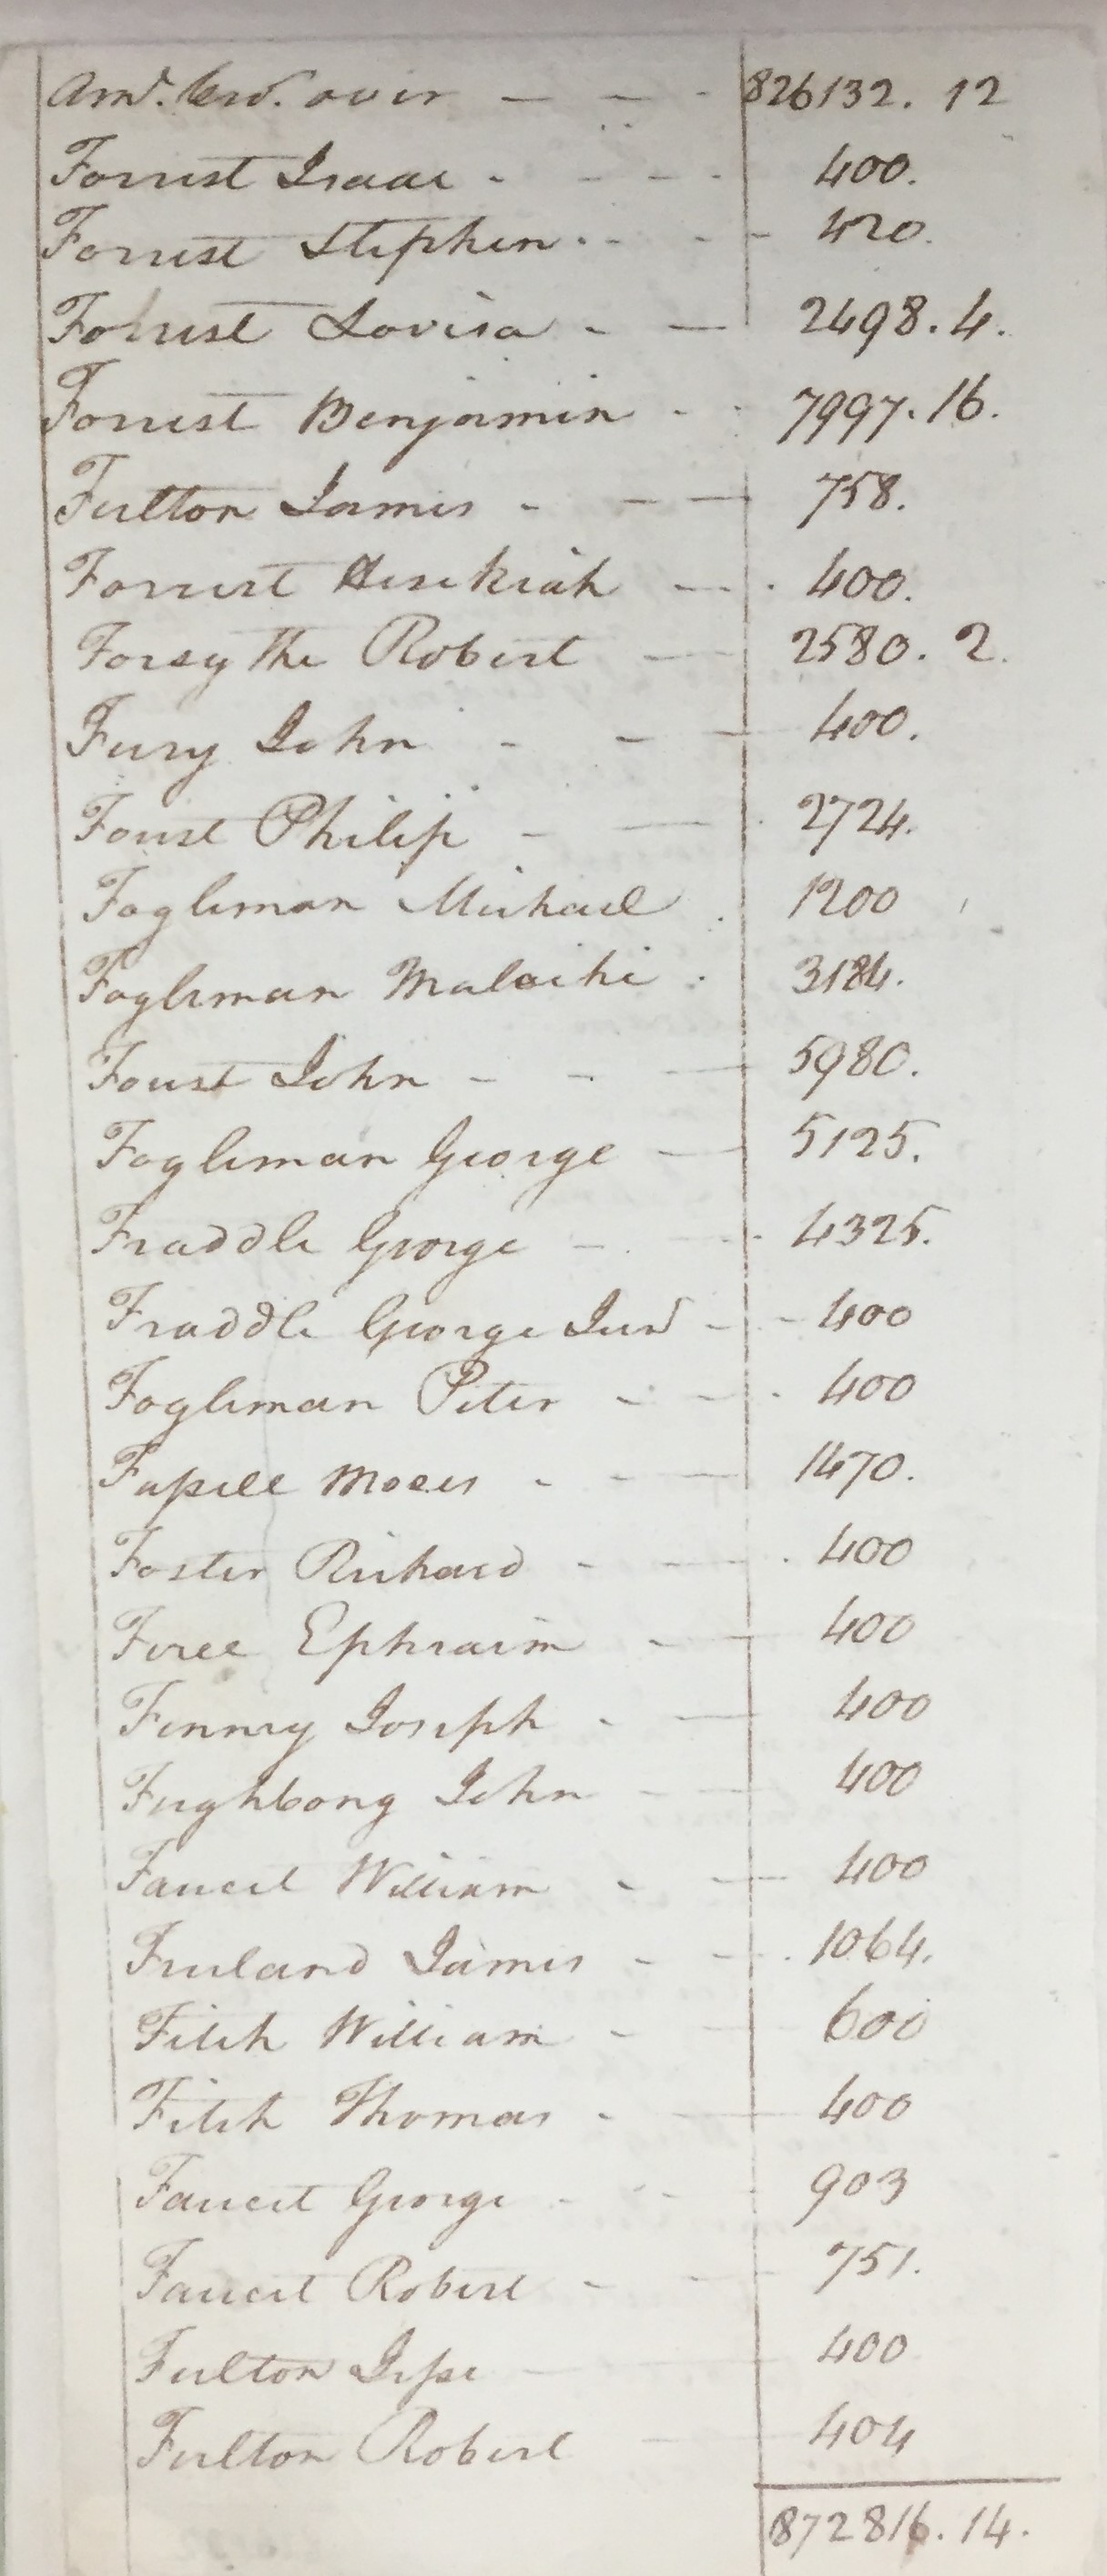 Amt. brt. over - - - 826132. 12
Forrest Isaac - - - - 400.
Forrest Stephen - - - 420.
Forrest Lovisa - - 2498. 4.
Forrest Benjamin - - 7997. 16.
Fulton James - - - 758.
Forrest Hesekiah - - 400.
Forsythe Robert - 2580. 2.
Fury John - - - 400.
Foust Philip - - - 2724.
Fogleman Michael . 1200
Fogleman Malachi . 3184.
Foust John - - - 5980.
Fogleman George - 5125.
Fraddle George - - 4325.
Fraddle George Junr - - 400
Fogleman Peter - - - 400
Fassell Moses - - - 1470.
Foster Richard - - - 400
Firee Ephraim - - 400
Finney Joseph - - 400
Fughbong John - - 400
Faucet William - - 400
Freeland James - - - 1064.
Fitch William - - 600
Fitch Thomas - - 400
Faucet George - - - 903
Faucet Robert - - 751.
Fulton Jesse - 400
Fulton Robert - 404
872816. 14.